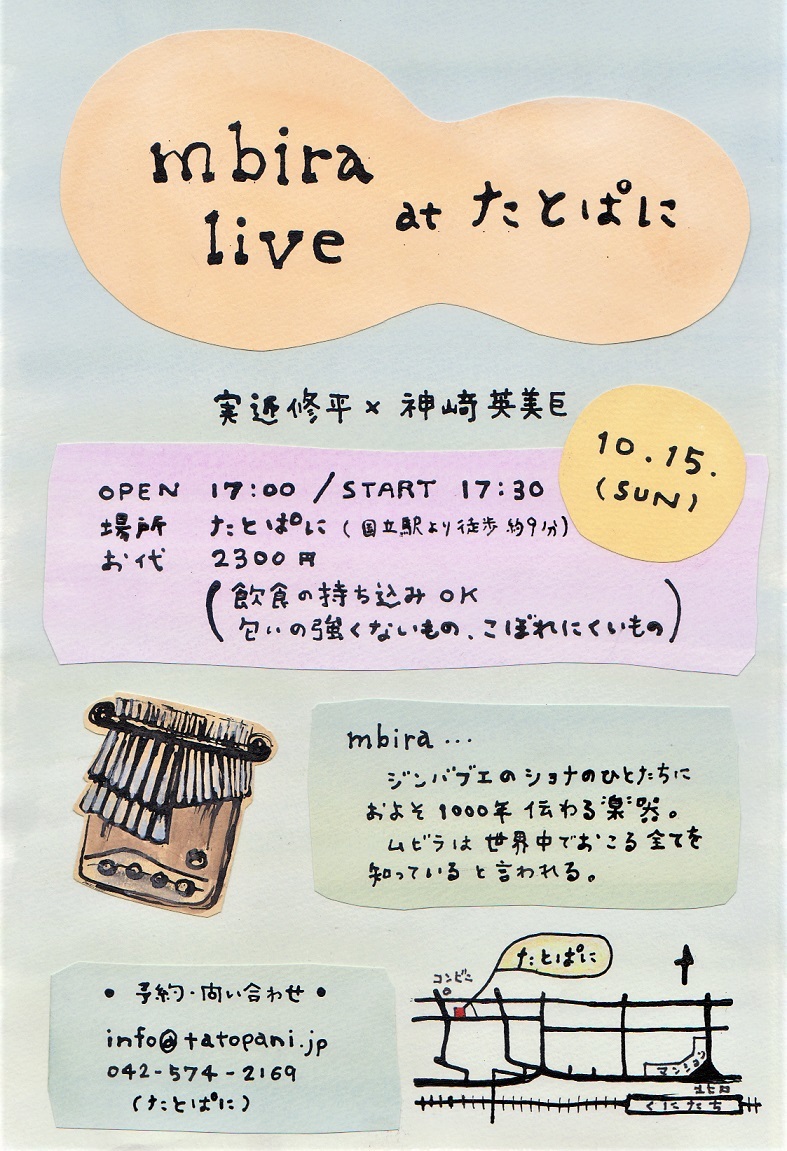 mbira
live at たとぱに
実近修平 × 神崎英美巨
10.15.
(SUN)
OPEN 17:00 / START 17:30
場所 たとぱに (国立駅より徒歩約9分)
お代 2300円
(飲食の持ち込みOK
匂いの強くないもの、こぼれにくいもの)
mbira...
ジンバブエのショナのひとたちに
およそ1000年伝わる楽器。
ムビラは世界中でおこる全てを
知っていると言われる。
• 予約・問い合わせ •
info@tatopani.jp
042-574-2169
(たとぱに)
たとぱに
コンビニ
マンション
北口
くにたち